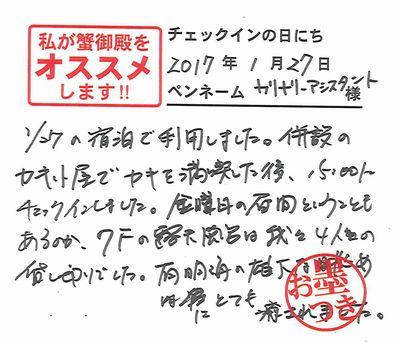 私が蟹御殿を
オススメ
します!!
チェックインの日にち
2017年 1月27日
ペンネーム ガリガリーアシスタント様
1/27の宿泊で利用しました。併設の
カキ小屋でカキを満喫した後、15:00に
チェックインしました。金曜日の夜間ということも
あるのか、7Fの露天風呂は我々4人組の
貸し切りでした。有明海の雄大な眺め
は常にとても癒されました。
お墨つき